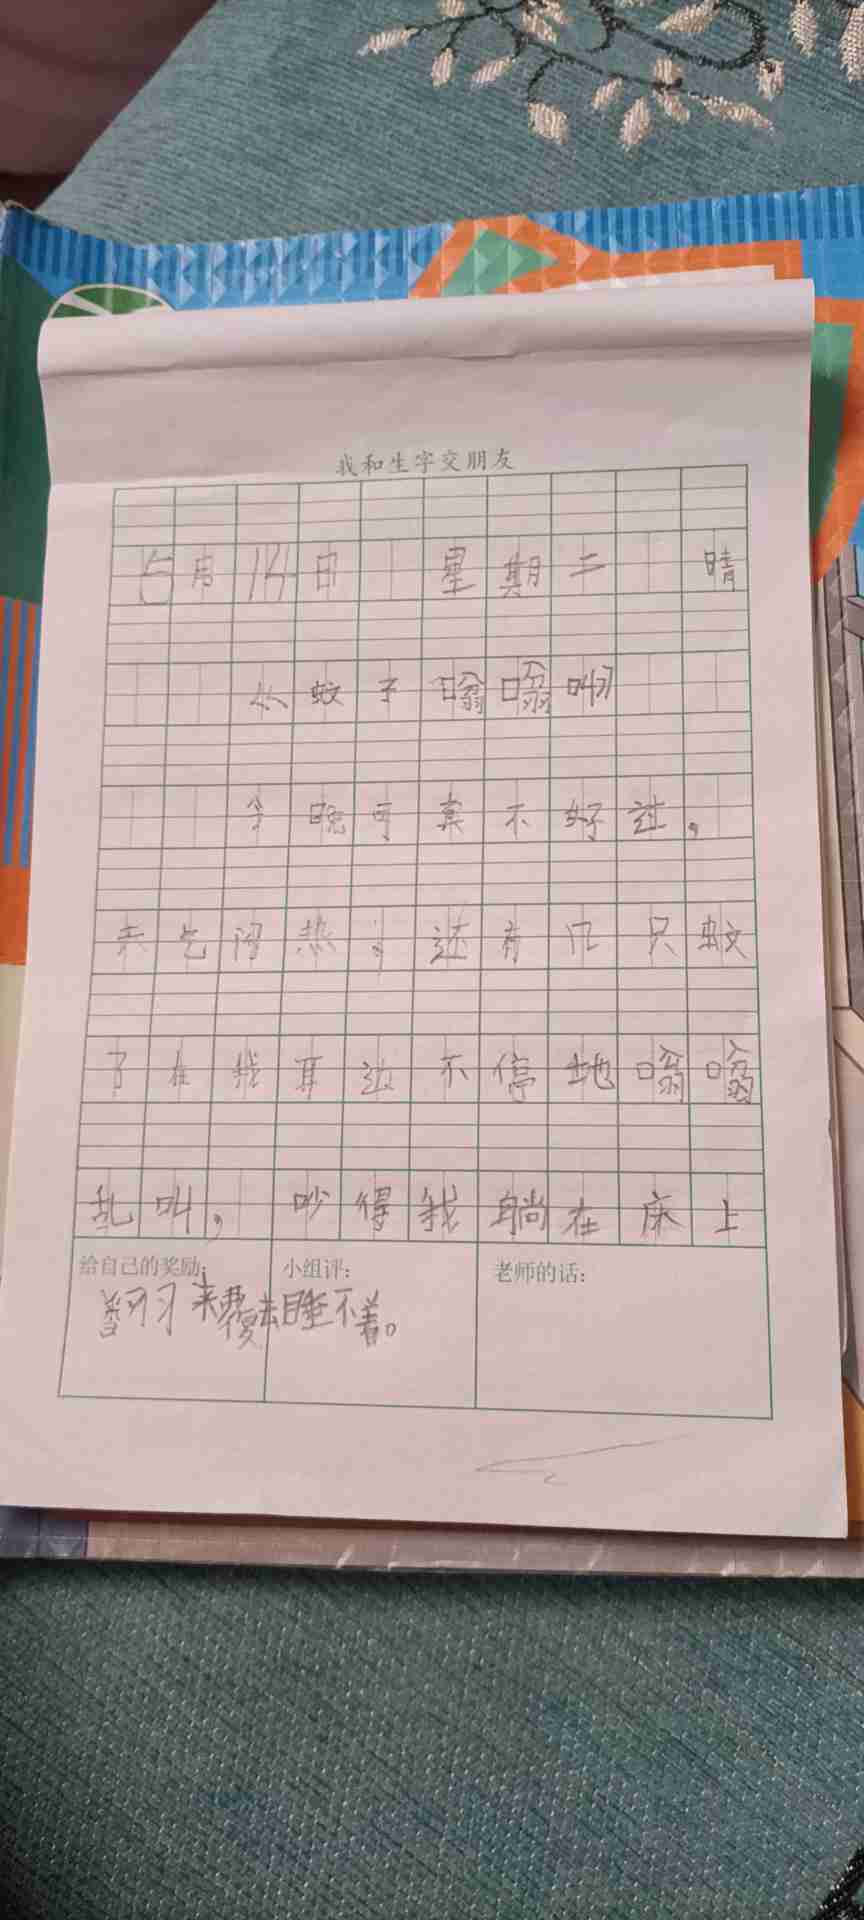 我和生字交朋友
5月14日 星期二 晴
蚊子嗡嗡叫
今晚可真不好过，
天气闷热，还有几只蚊
子在我耳边不停地嗡嗡
乱叫，吵得我躺在床上
给自己的奖励：
小组评：
老师的话：
翻来覆去睡不着。